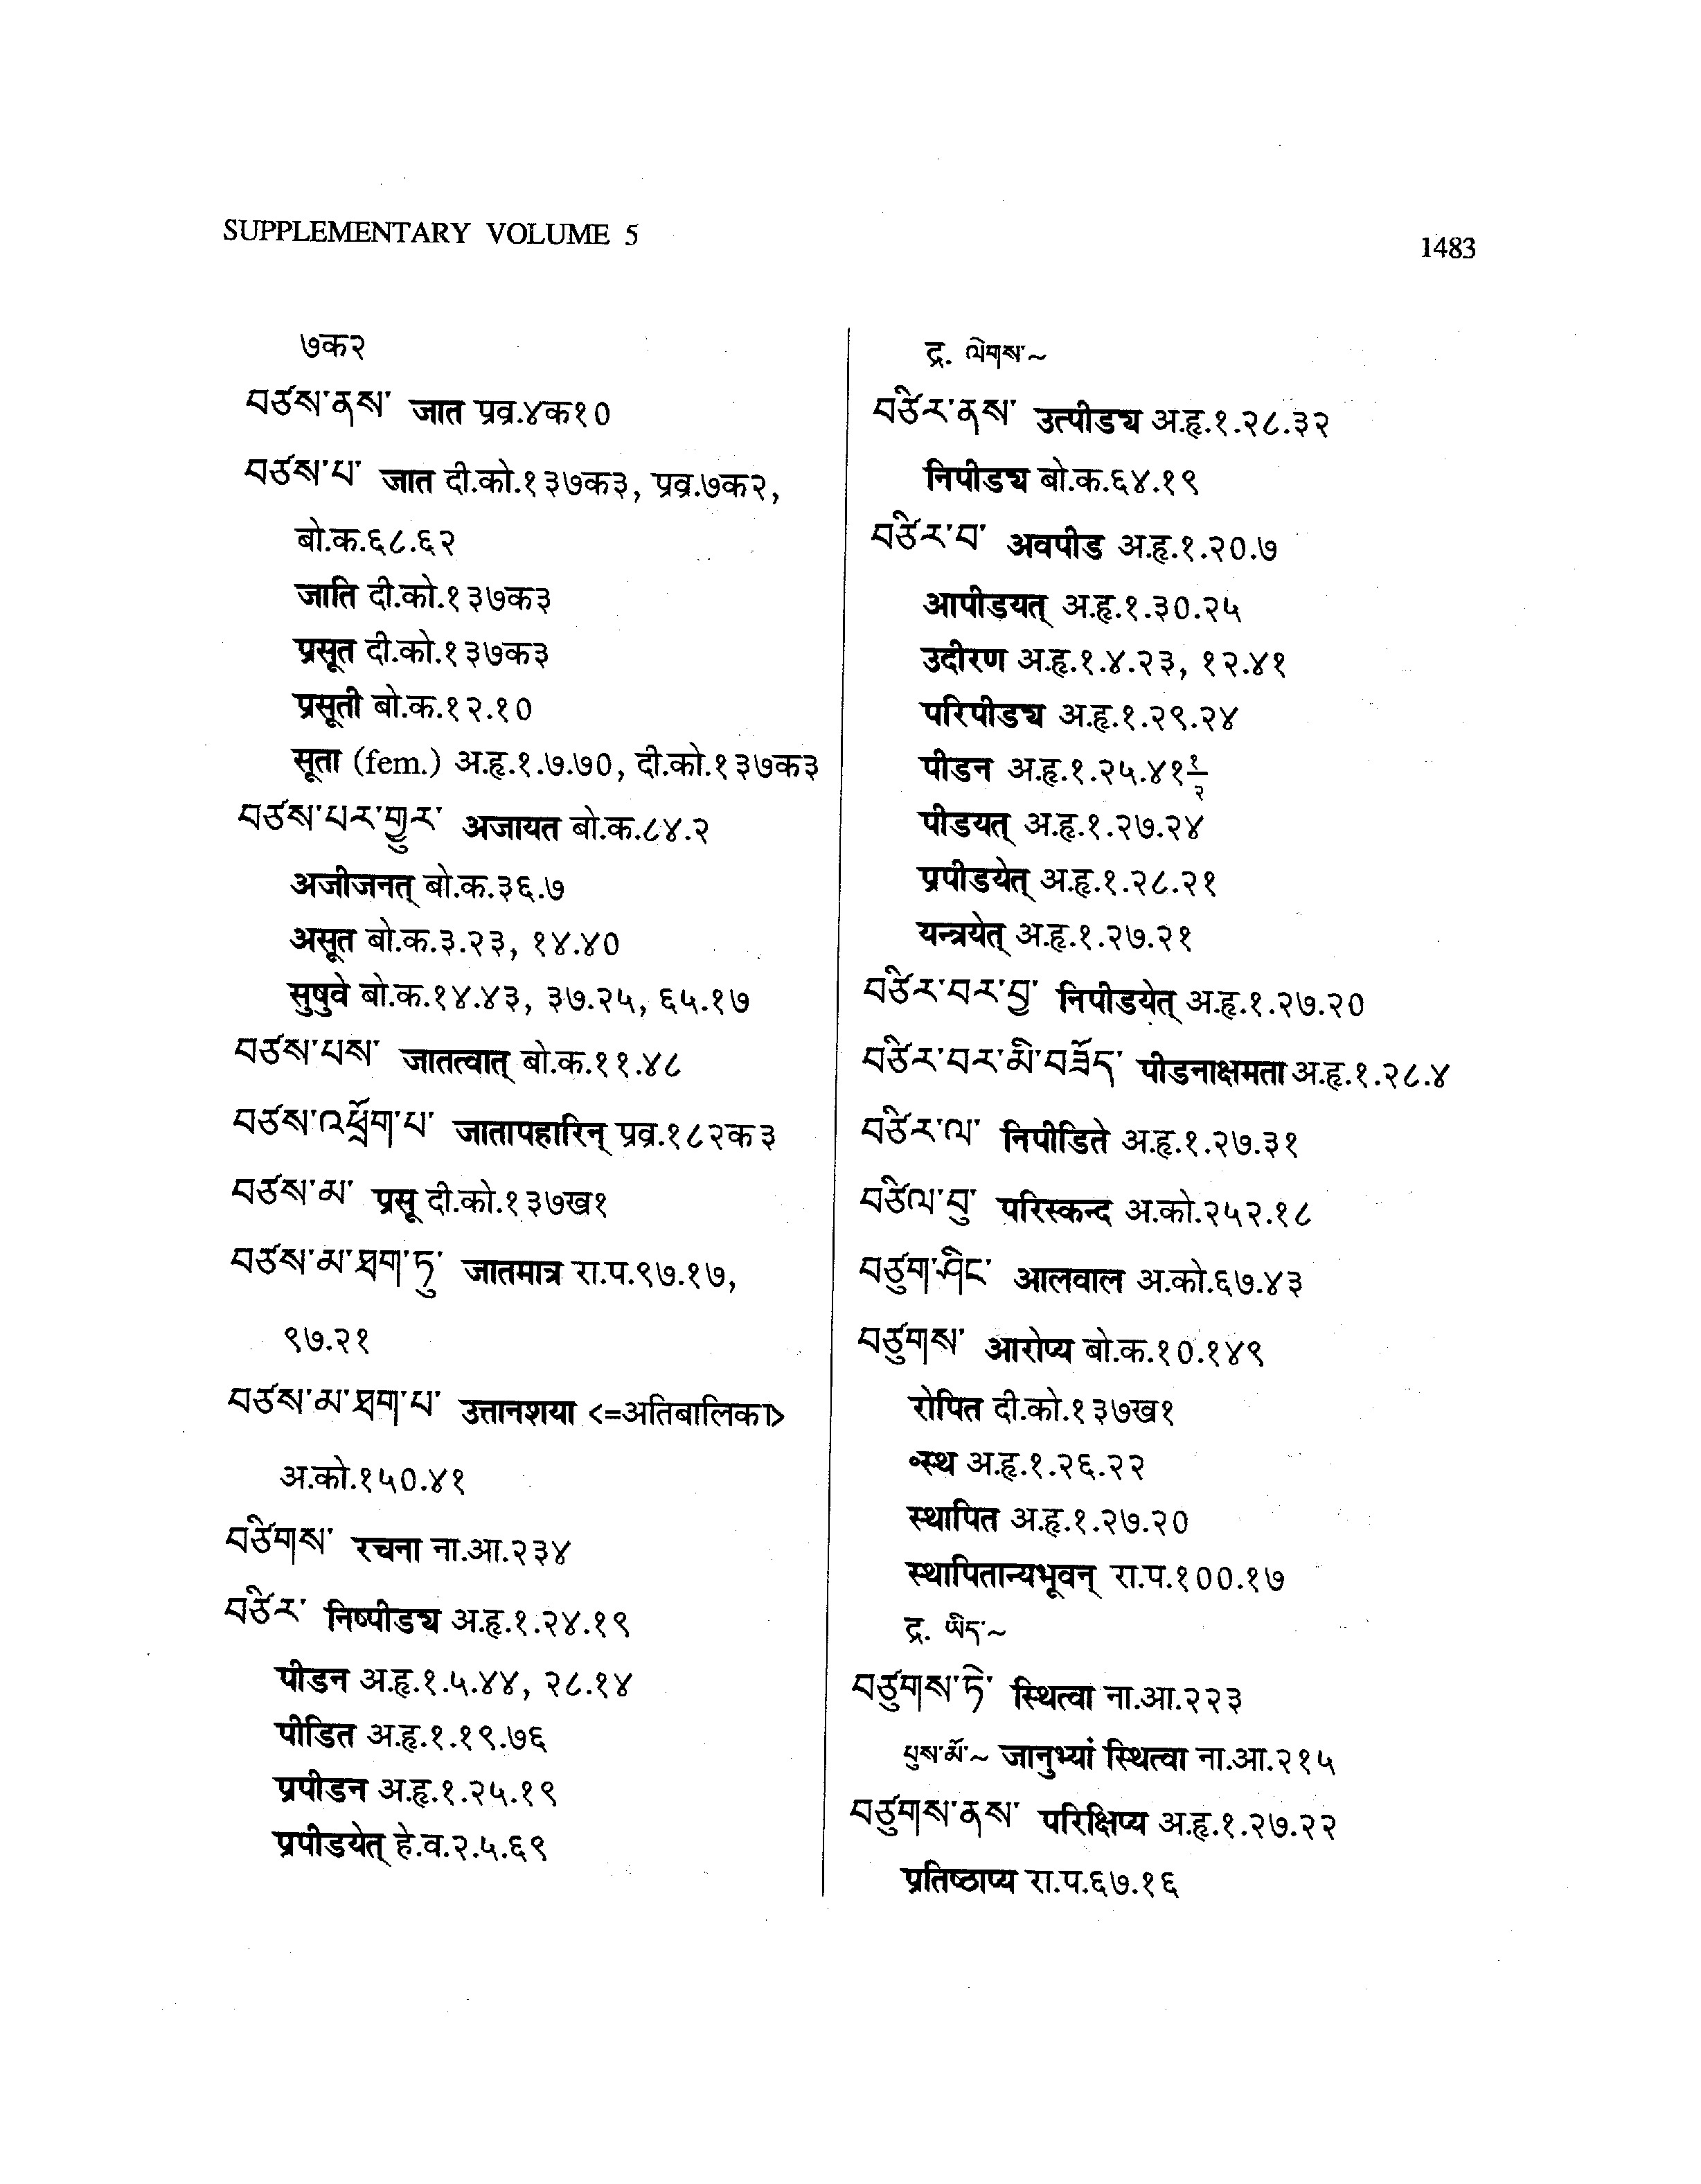 SUPPLEMENTARY VOLUME 5
1483
७क२
བཙས་ནས་ जात प्रव्र.४क१०
བཙས་པ་ जात दी.को.१३७क३, प्रव्र.७क२,
बो.क.६८.६२
जाति दी.को.१३७क३
प्रसूत दी.को.१३७क३
प्रसूती बो.क.१२.१०
सूता (fem.) अ.हृ.१.७.७०, दी.को.१३७क३
བཙས་པར་གྱུར་ अजायत बो.क.८४.२
अजीजनत् बो.क.३६.७
असूत बो.क.३.२३, १४.४०
सुषुवे बो.क.१४.४३, ३७.२५, ६५.१७
བཙས་པས་ जातत्वात् बो.क.११.४८
བཙས་འཕྲོག་པ་ जातापहारिन् प्रव्र.१८२क३
བཙས་མ་ प्रसू दी.को.१३७ख१
བཙས་མ་ཐག་ཏུ་ जातमात्र रा.प.९७.१७,
९७.२१
བཙས་མ་ཐག་པ་ उत्तानशया <=अतिबालिका>
अ.को.१५०.४१
བཙིགས་ रचना ना.आ.२३४
བཙིར་ निष्पीड्य अ.हृ.१.२४.१९
पीडन अ.हृ.१.५.४४, २८.१४
पीडित अ.हृ.१.१९.७६
प्रपीडन अ.हृ.१.२५.१९
प्रपीडयेत् हे.व.२.५.६९
द्र. ལེགས་~
བཙིར་ནས་ उत्पीड्य अ.हृ.१.२८.३२
निपीड्य बो.क.६४.१९
བཙིར་བ་ अवपीड अ.हृ.१.२०.७
आपीडयत् अ.हृ.१.३०.२५
उदीरण अ.हृ.१.४.२३, १२.४१
परिपीड्य अ.हृ.१.२९.२४
पीडन अ.हृ.१.२५.४११/२
पीडयत् अ.हृ.१.२७.२४
प्रपीडयेत् अ.हृ.१.२८.२१
यन्त्रयेत् अ.हृ.१.२७.२१
བཙིར་བར་བྱ་ निपीडयेत् अ.हृ.१.२७.२०
བཙིར་བར་མི་བཟོད་ पीडनाक्षमता अ.हृ.१.२८.४
བཙིར་ལ་ निपीडिते अ.हृ.१.२७.३१
བཙིལ་བུ་ परिस्कन्द अ.को.२५२.१८
བཙུག་ཤིང་ आलवाल अ.को.६७.४३
བཙུགས་ आरोप्य बो.क.१०.१४९
रोपित दी.को.१३७ख१
॰स्थ अ.हृ.१.२६.२२
स्थापित अ.हृ.१.२७.२०
स्थापितान्यभूवन् रा.प.१००.१७
द्र. ཡིད་~
བཙུགས་ཏེ་ स्थित्वा ना.आ.२२३
པུས་མོ་~ जानुभ्यां स्थित्वा ना.आ.२१५
བཙུགས་ནས་ परिक्षिप्य अ.हृ.१.२७.२२
प्रतिष्ठाप्य रा.प.६७.१६